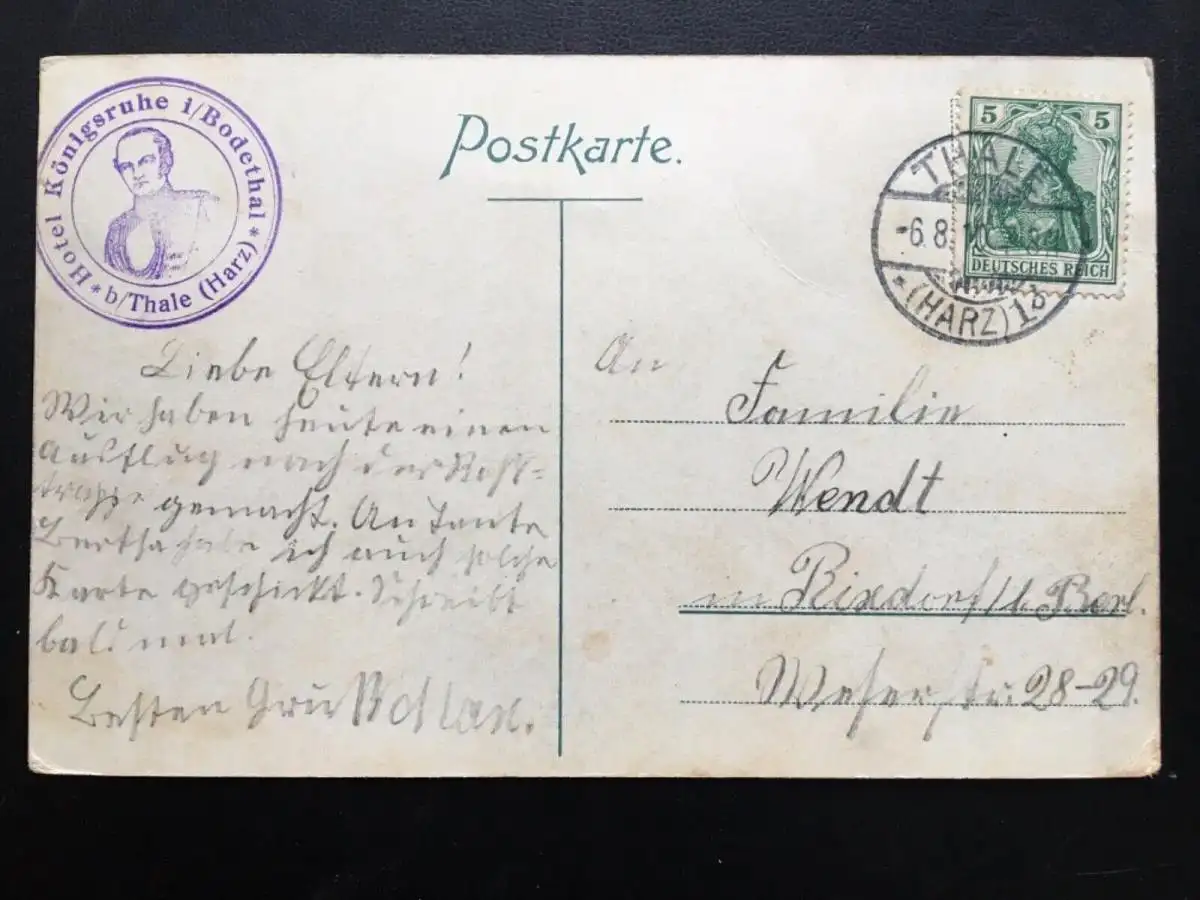 Hotel Königsruhe i/Bodethal
* b/Thale (Harz) *
Postkarte.
5 5
DEUTSCHES REICH
THALE
-6.8.10
*(HARZ)1b
Liebe Eltern!
Wir haben heute einen
Ausflug nach der Roß-
trappe gemacht. An Tante
Bertha habe ich auch solche
Karte geschickt. Schreibt
bald mal.
Besten Gruß
An
Familie
Wendt
in Rixdorf/b. Berl.
Weserstr. 28-29.